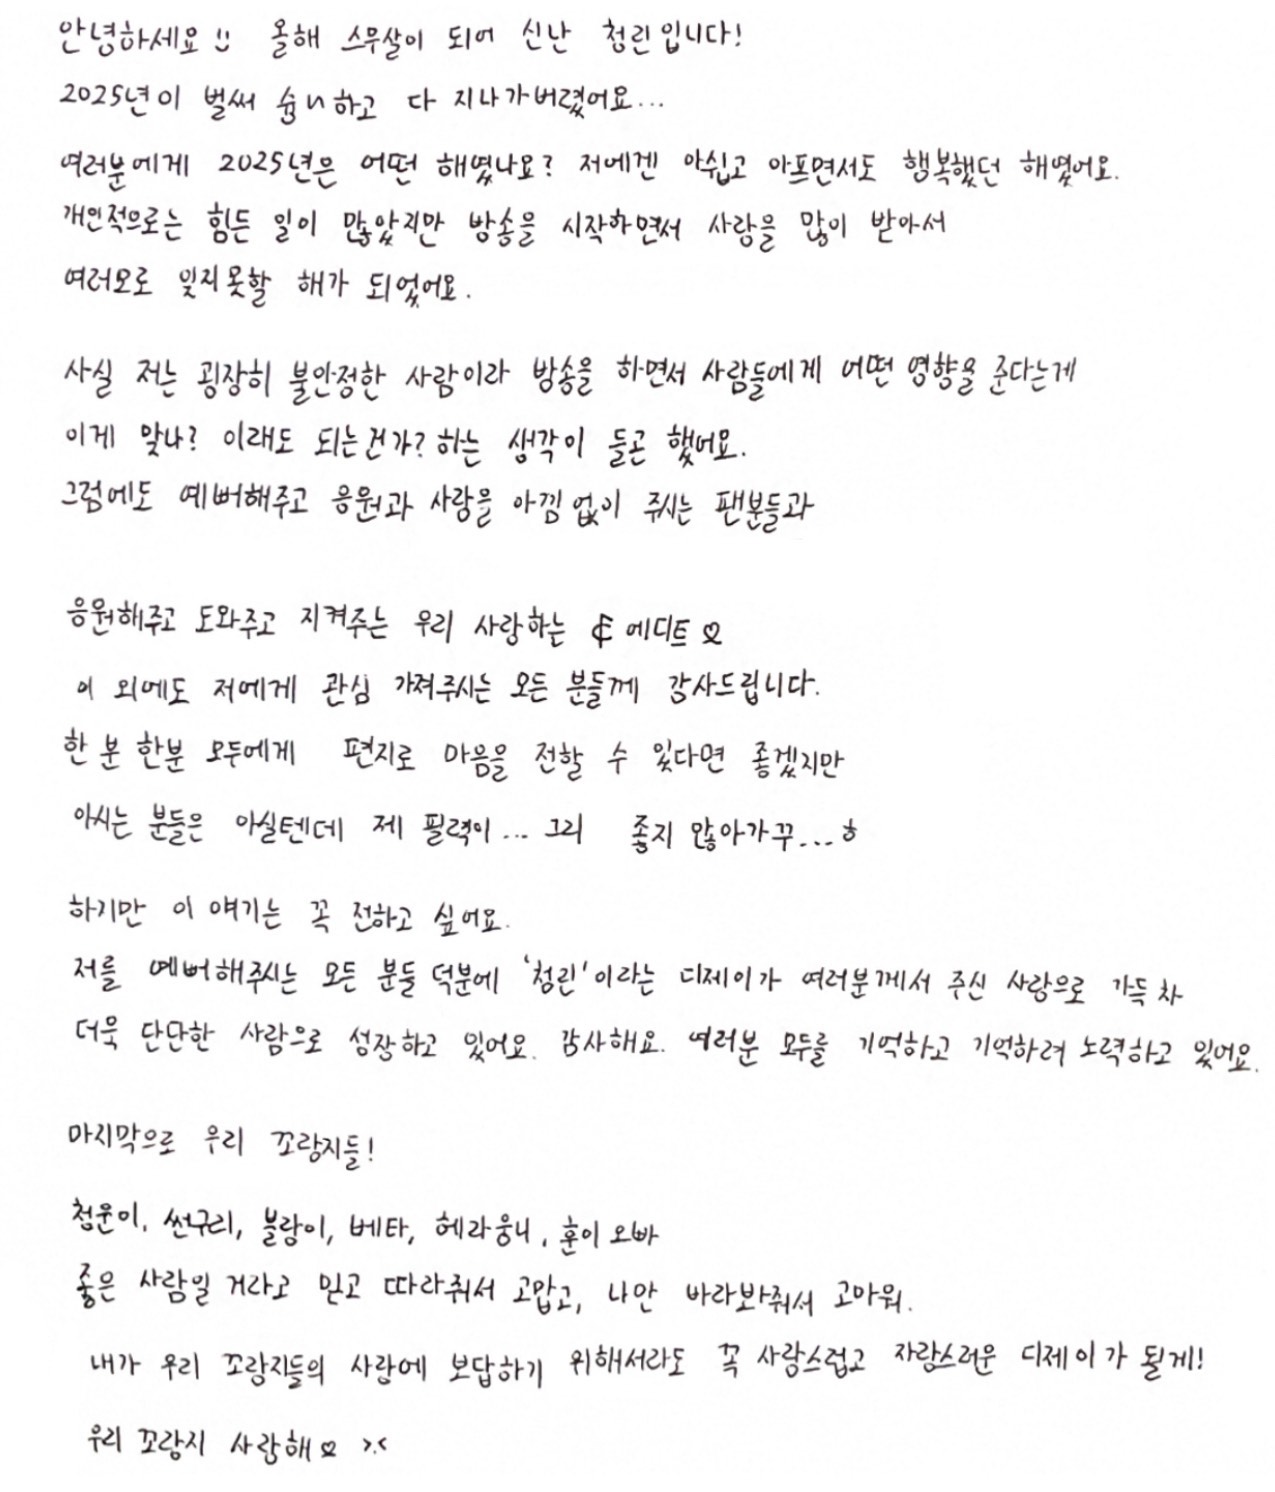 안녕하세요 :) 올해 스무살이 되어 신난 청린입니다!
2025년이 벌써 슝~하고 다 지나가버렸어요...
여러분에게 2025년은 어떤 해였나요? 저에겐 아쉽고 아프면서도 행복했던 해였어요.
개인적으로는 힘든 일이 많았지만 방송을 시작하면서 사랑을 많이 받아서
여러모로 잊지못할 해가 되었어요.
사실 저는 굉장히 불안정한 사람이라 방송을 하면서 사람들에게 어떤 영향을 준다는게
이게 맞나? 이래도 되는건가? 하는 생각이 들곤 했어요.
그럼에도 예뻐해주고 응원과 사랑을 아낌없이 주시는 팬분들과
응원해주고 도와주고 지켜주는 우리 사랑하는 에디트♡
이 외에도 저에게 관심 가져주시는 모든 분들께 감사드립니다.
한 분 한분 모두에게 편지로 마음을 전할 수 있다면 좋겠지만
아시는 분들은 아실텐데 제 필력이... 그리 좋지 않아가꾸...ㅎ
하지만 이 얘기는 꼭 전하고 싶어요.
저를 예뻐해주시는 모든 분들 덕분에 '청린'이라는 디제이가 여러분께서 주신 사랑으로 가득 차
더욱 단단한 사람으로 성장하고 있어요. 감사해요. 여러분 모두를 기억하고 기억하려 노력하고 있어요.
마지막으로 우리 꼬랑지들!
청운이, 썬구리, 블랑이, 베타, 헤라웅니, 훈이오빠
좋은 사람일 거라고 믿고 따라줘서 고맙고, 나안 바라봐줘서 고마워.
내가 우리 꼬랑지들의 사랑에 보답하기 위해서라도 꼭 사랑스럽고 자랑스러운 디제이가 될게!
우리 꼬랑지 사랑해♡ >.<